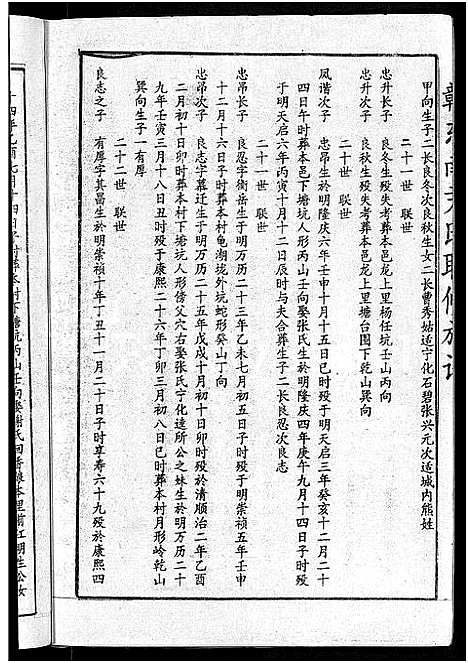 甲向生子二长良冬次良秋生女二长曹秀姑适宁化石碧张兴元次适城内熊姓
二十一世 联世
忠升长子 良冬生殁失考葬本邑龙上里杨任坑壬山丙向
忠升次子 良秋生殁失考葬本邑龙上里塘台围下乾山巽向
二十世 联世
凤谐次子 忠昂生於明隆庆六年壬申十月十五日巳时殁於明天启三年癸亥十二月二十
四日午时葬本邑下塘坑人形丙山壬向娶张氏生於明隆庆四年庚午九月十四日子时殁
于明天启六年丙寅十月十二日辰时与夫合葬生子二长良忍次良志
二十一世 联世
忠昂长子 良忍字衡岳生于明万历二十三年乙未七月初五日子时殁于明崇祯五年壬申
十二月十六日子时葬本村龟湖垅外坑蛇形癸山丁向
忠昂次子 良志字慕迁生于明万历二十五年戊戌十月初十日卯时殁於清顺治二年乙酉
二月初十日卯时葬本村下塘坑人形傍父穴右娶张氏宁化达所公之妹生於明万历二十
九年壬寅三月十八日丑时殁于康熙二十六年丁卯三月初八日巳时葬本村月形岭乾山
巽向生子一有厚
二十二世 联世
良志之子 有厚字其嵓生於明崇祯十年丁丑十一月二十日子时享寿六十九殁於康熙四